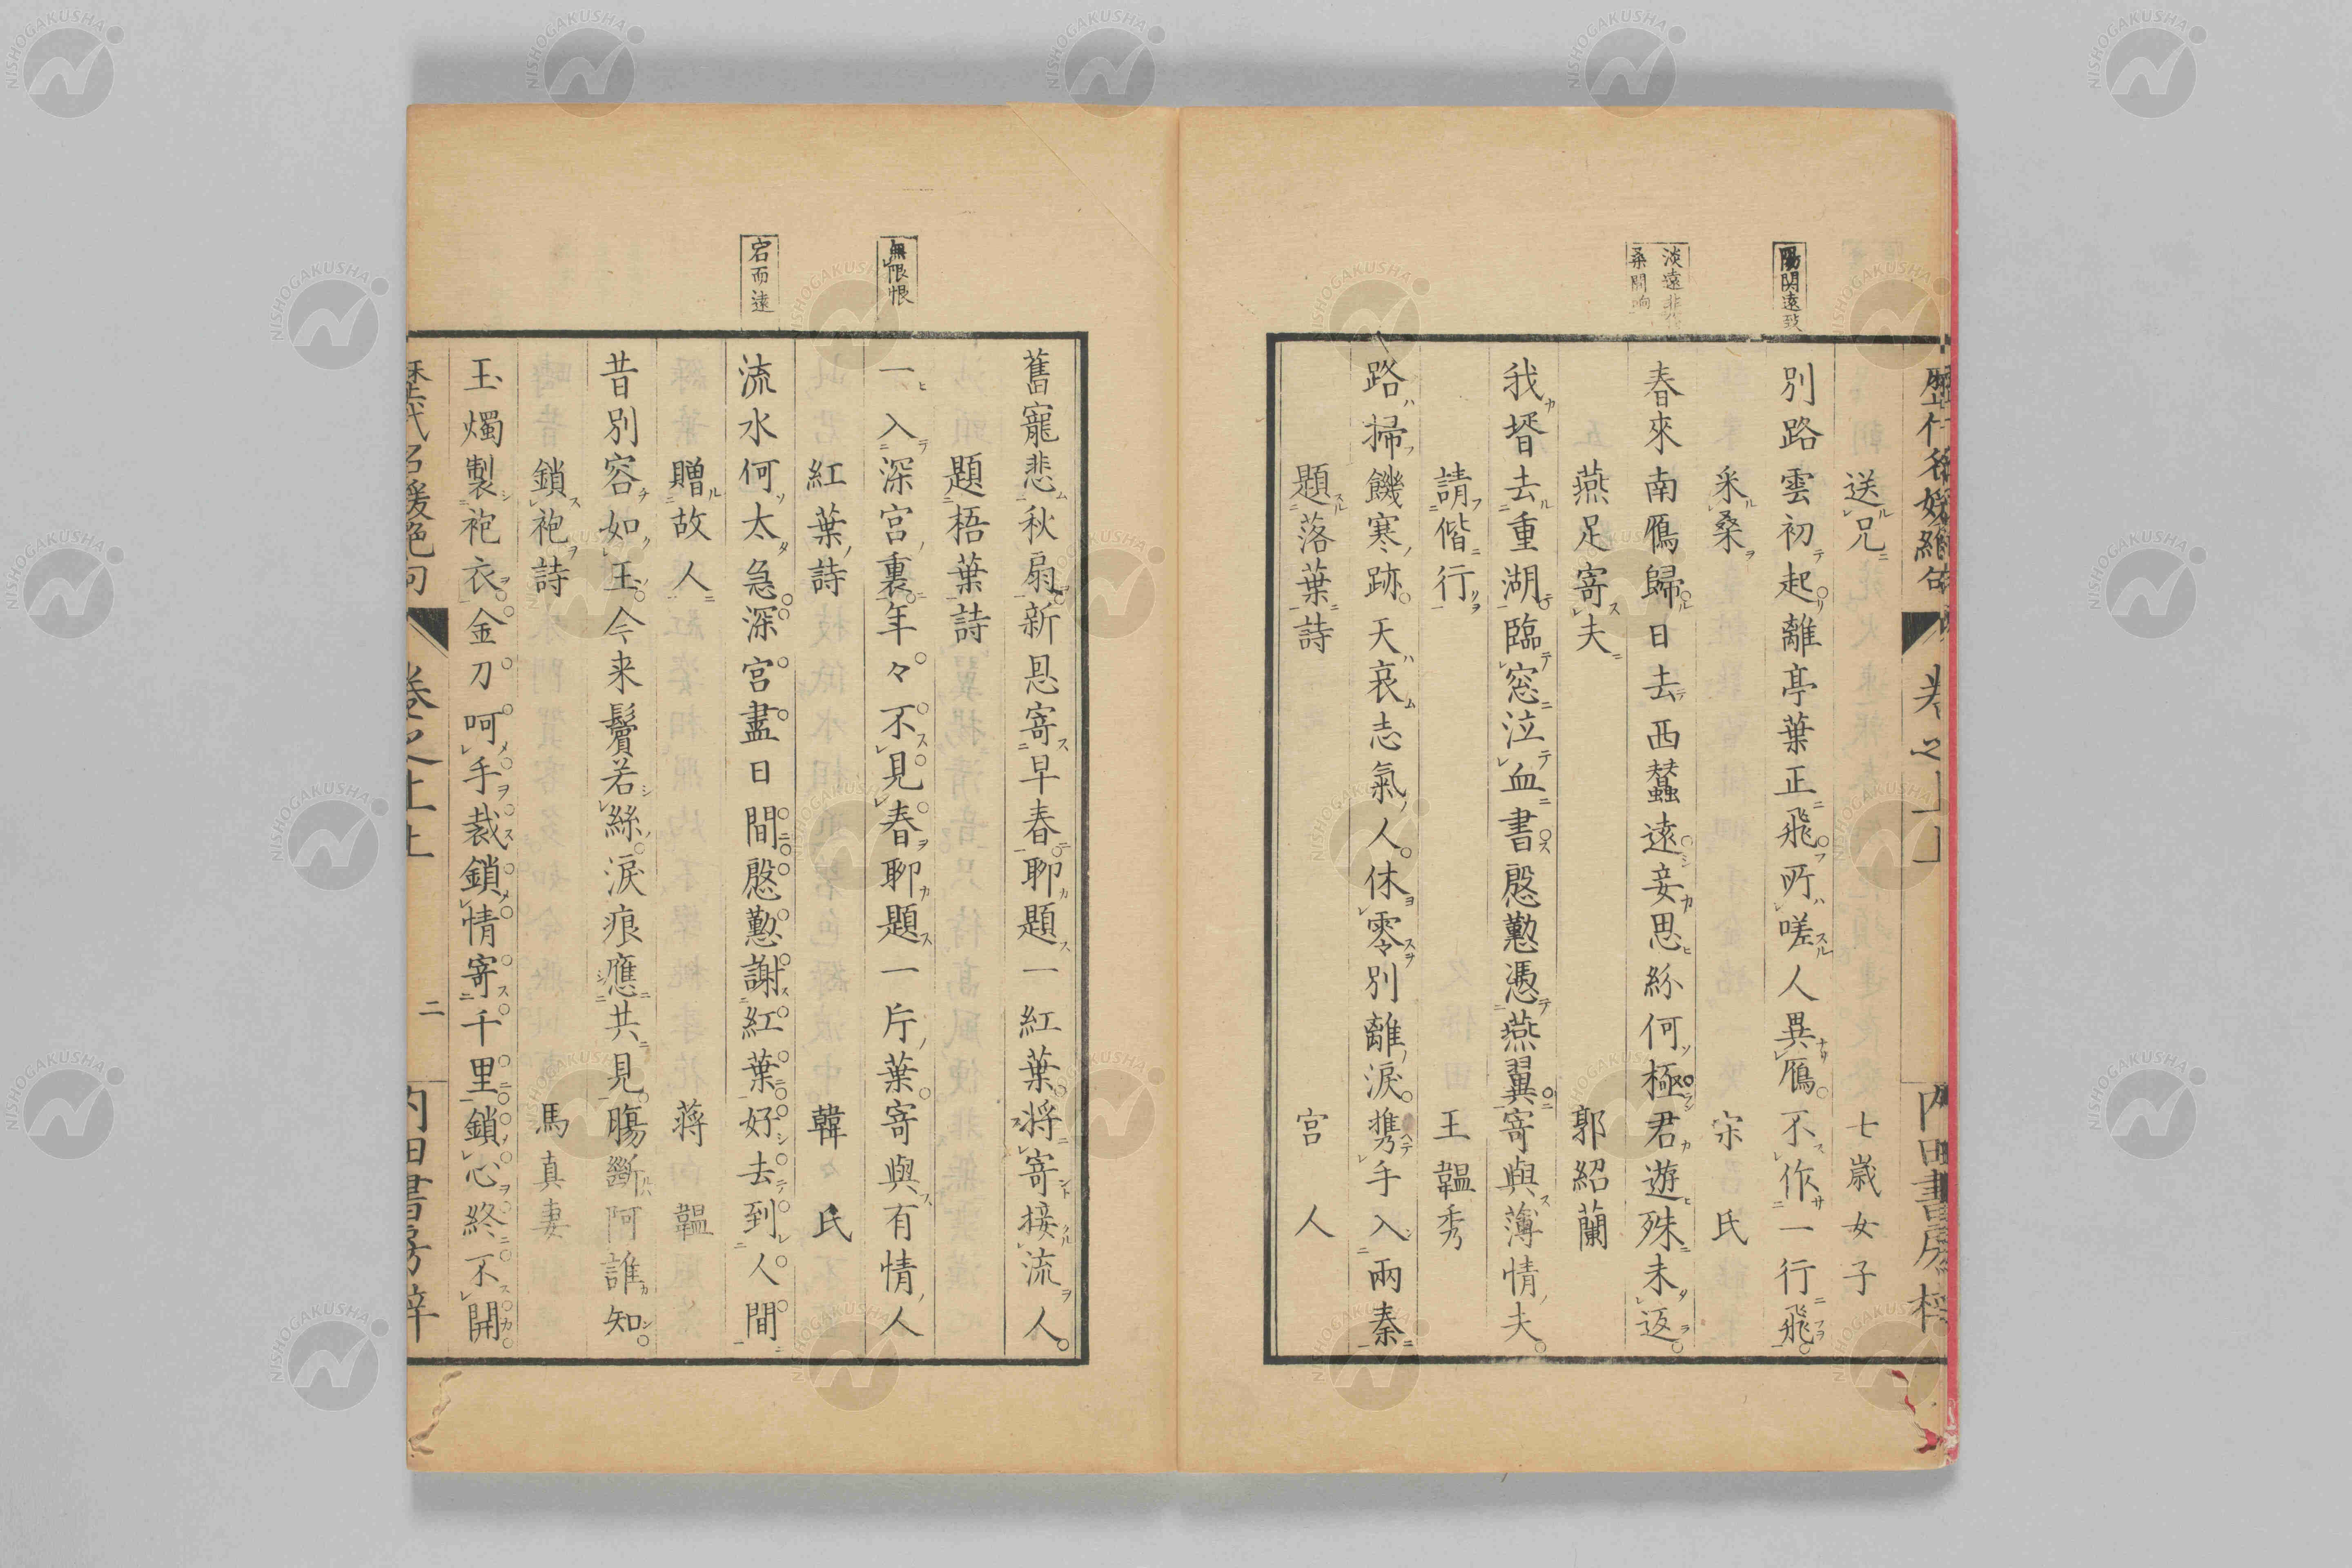 送兄 七歳女子
陽関遠致
別路雲初起離亭葉正飛所嗟人異鴈不作一行飛
采桑 宋氏
淡遠悲
桑間
春來南鴈歸日去西蠶遠妾思紛何極君遊殊未返
燕足寄夫 郭紹蘭
我壻去重湖臨窓泣血書慇懃憑燕翼寄與薄情夫
請偕行 王韞秀
路掃饑寒跡天哀志氣人休零別離淚携手入兩秦
題落葉詩 宮人
舊寵悲秋扇新恩寄早春聊題一紅葉將寄接流人
題梧葉詩
無限恨
一入深宮裏年々不見春聊題一片葉寄與有情人
紅葉詩 韓氏
宕而遠
流水何太急深宮盡日間慇懃謝紅葉好去到人間
贈故人 蒋韞
昔別容如玉今来鬢若絲淚痕應共見腸斷阿誰知
鎖袍詩 馬真妻
玉燭製袍衣金刀呵手裁鎖情寄千里鎖心終不開
歴代名媛絶句 卷之上 二 内田書房梓
NISHOGAKUSHA